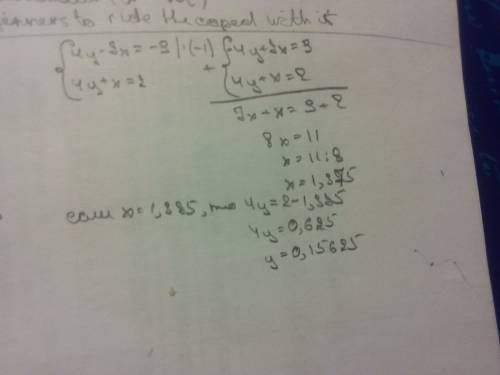 jenners to ride the coped with it
{4y-7x=-9|·(-1)
4y+x=2
+ {4y+7x=9
4y+x=2
7x+x=9+2
8x=11
x=11:8
x=1,375
если x=1,385, то 4y=2-1,385
4y=0,625
y=0,15625